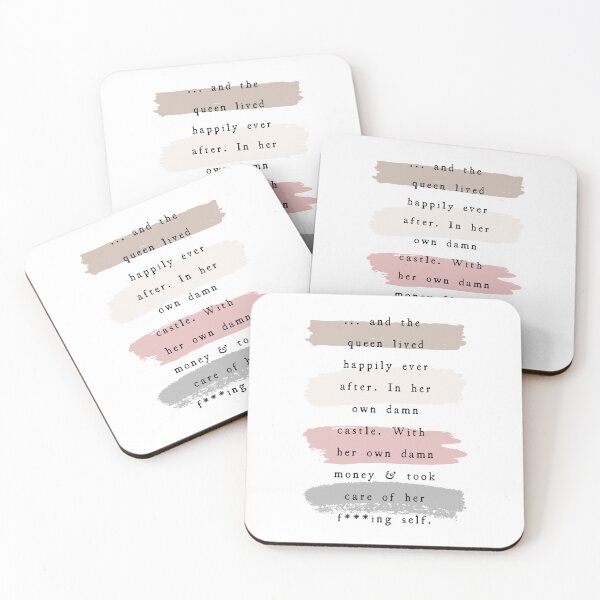 ... and the
queen lived
happily ever
after. In her
own damn
... and the
queen lived
happily ever
after. In her
own damn
castle. With
her own damn
... and the
queen lived
happily ever
after. In her
own damn
castle. With
her own damn
money & took
care of
f***ing
... and the
queen lived
happily ever
after. In her
own damn
castle. With
her own damn
money & took
care of her
f***ing self.